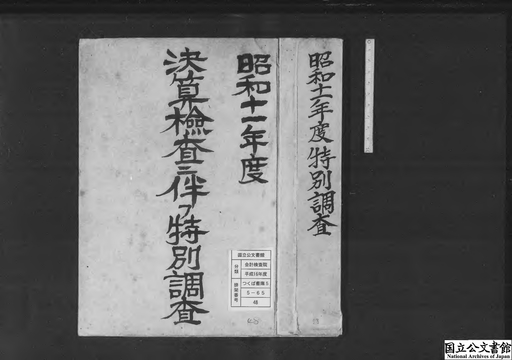 昭和十一年度特別調査
昭和十一年度
決算検査ニ伴フ特別調査
国立公文書館
分類
会計検査院
平成16年度
排架番号
つくば書庫5
5-65
48
国立公文書館
National Archives of Japan